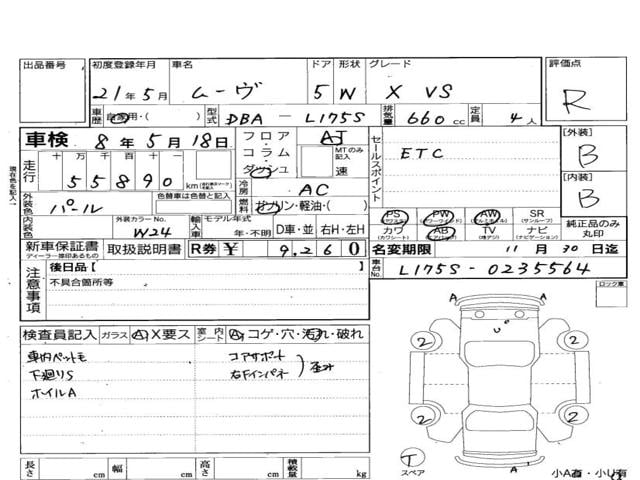 出品番号 初度登録年月 車名 ドア 形状 グレード 評価点
21年5月 ムーヴ 5 W X VS R
車歴 自家用・( ) 型式 DBA - L175S 排気量 660 cc 定員 4人
車検 8年5月18日 フロア コラム ダッシュ AT MTのみ記入 速
走行 十万千百十一 55890 km
冷房 AC
セールスポイント ETC
[外装] B
[内装] B
外装色 パール 色替車は色替と記入 燃料 ガソリン・軽油・( )
内装色 外装カラーNo. W24 輸入車 モデル年式 年・不明 D車・並 右H・左H
PS PW AW SR
(パワステ) (パワーウィンド) (アルミホイル) (サンルーフ)
カワ AB TV ナビ
(カワシート) (エアバック) (地デジ) (ナビゲーション)
純正品のみ丸印
新車保証書 取扱説明書 R券 ¥ 9,260
ディーラー捺印あるもの
名変期限 11月30日迄
車台No. L175S-0235564
注意事項 後日品【 】
不具合箇所等
ロック車
検査員記入 ガラス A・X要ス 室内シート A・コゲ・穴・汚れ・破れ
車内ペットモ コアサポート
下廻りS 右Fインパネ 歪み
ホイルA
A
A
2 2
2 2
T
スペア
A
長さ cm 幅 cm 高さ cm 積載量 kg
小A有・小U有
現在色を記入